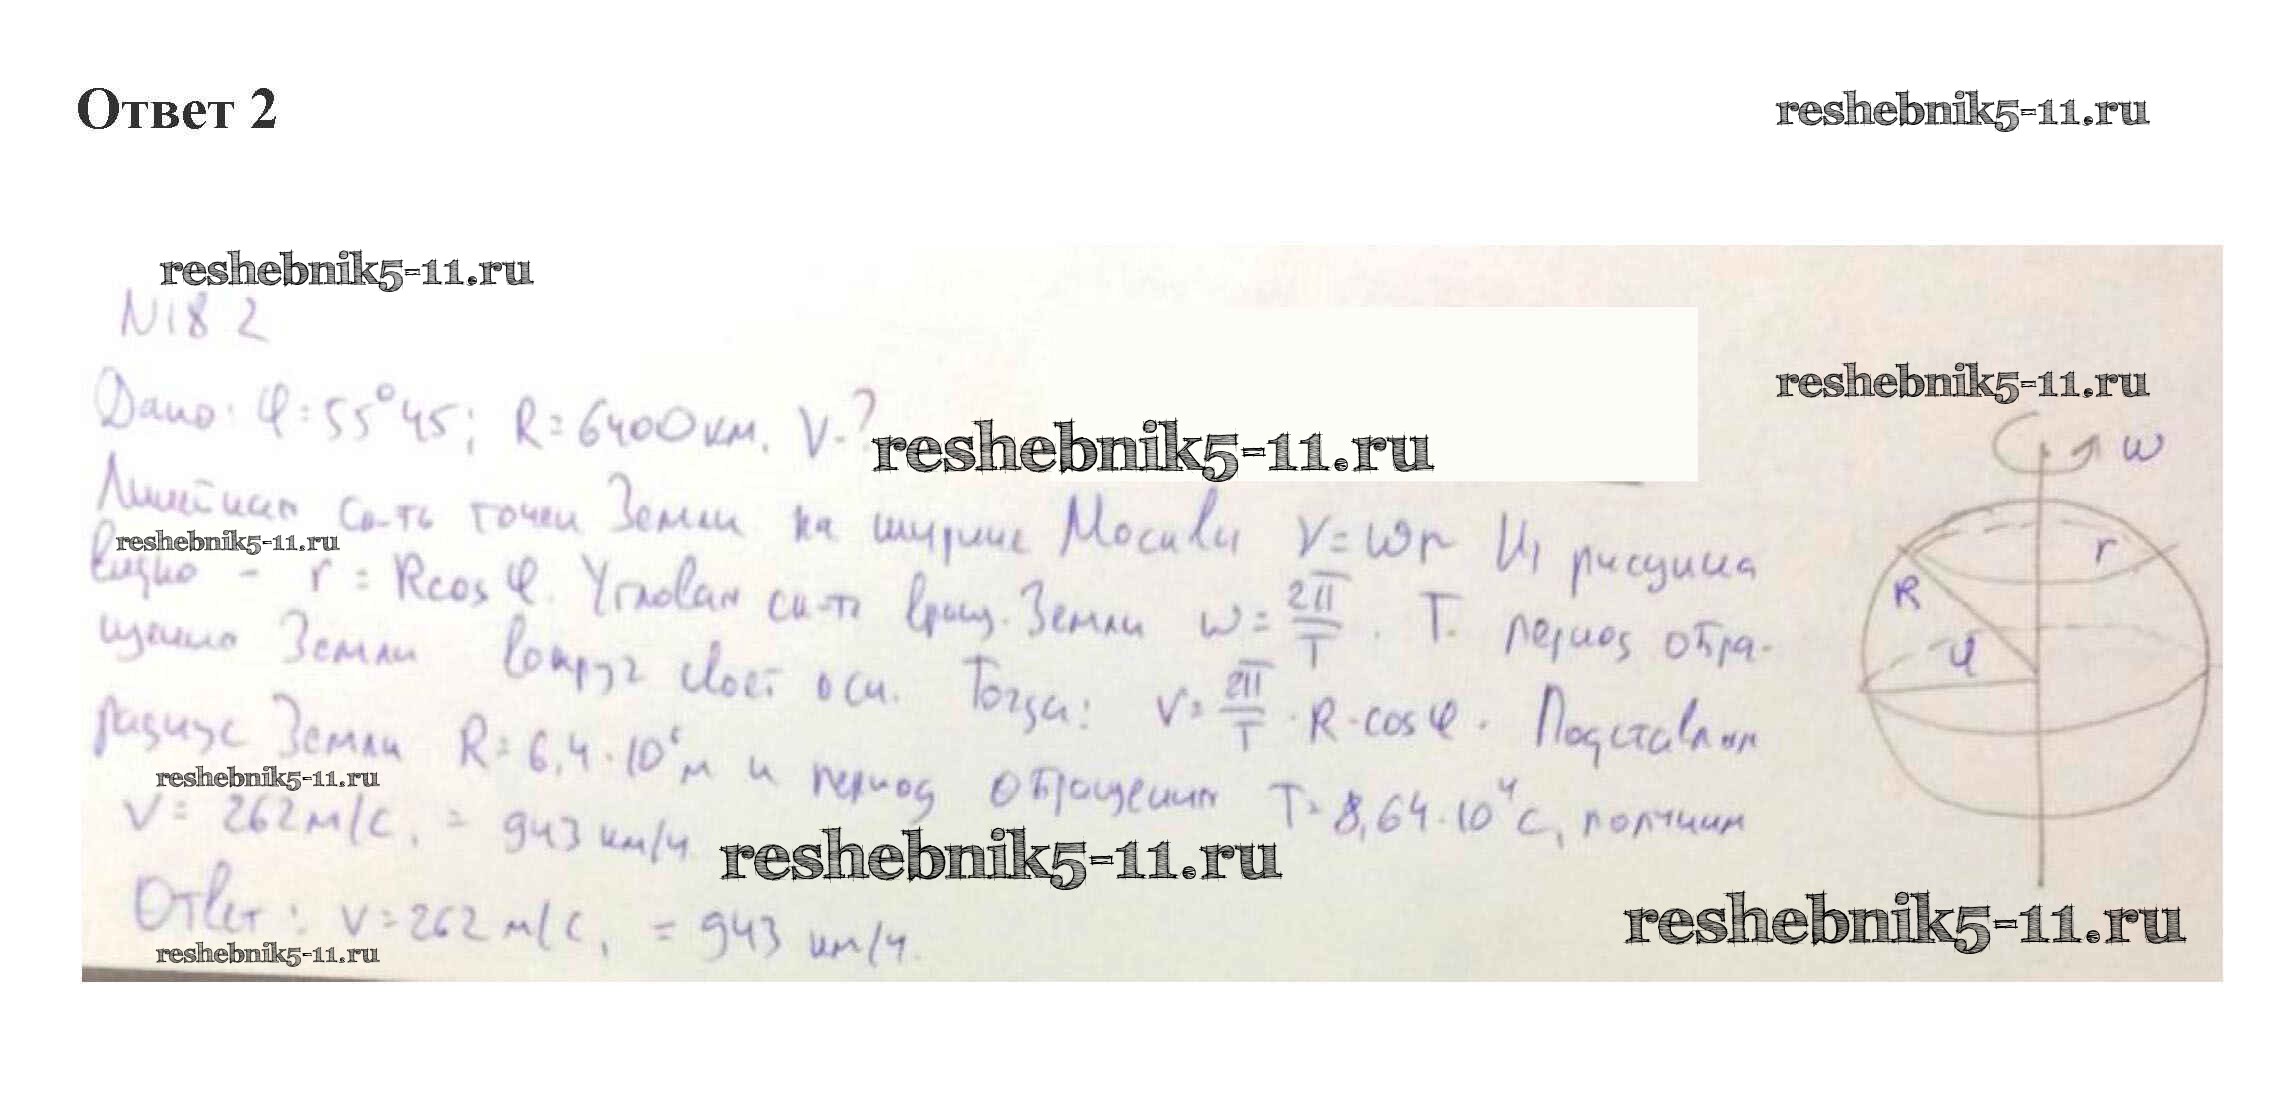 Ответ 2
reshebnik5-11.ru
reshebnik5-11.ru
N18 2
reshebnik5-11.ru
Дано: φ=55°45; R=6400км. V-?
reshebnik5-11.ru
Линейная ск-ть точки Земли на широте Москвы V=ωr Из рисунка
reshebnik5-11.ru
видно - r = Rcos φ. Угловая ск-ть вращ. Земли ω = 2π/T . T. период обра-
щения Земли вокруг своей оси. Тогда: V= 2π/T · R · cos φ . Подставляя
радиус Земли R = 6,4 · 10⁶ м и период обращения T = 8,64 · 10⁴ с, получим
reshebnik5-11.ru
V = 262 м/с, = 943 км/ч
reshebnik5-11.ru
Ответ: V = 262 м/с, = 943 км/ч.
reshebnik5-11.ru
reshebnik5-11.ru
ω
r
R
φ